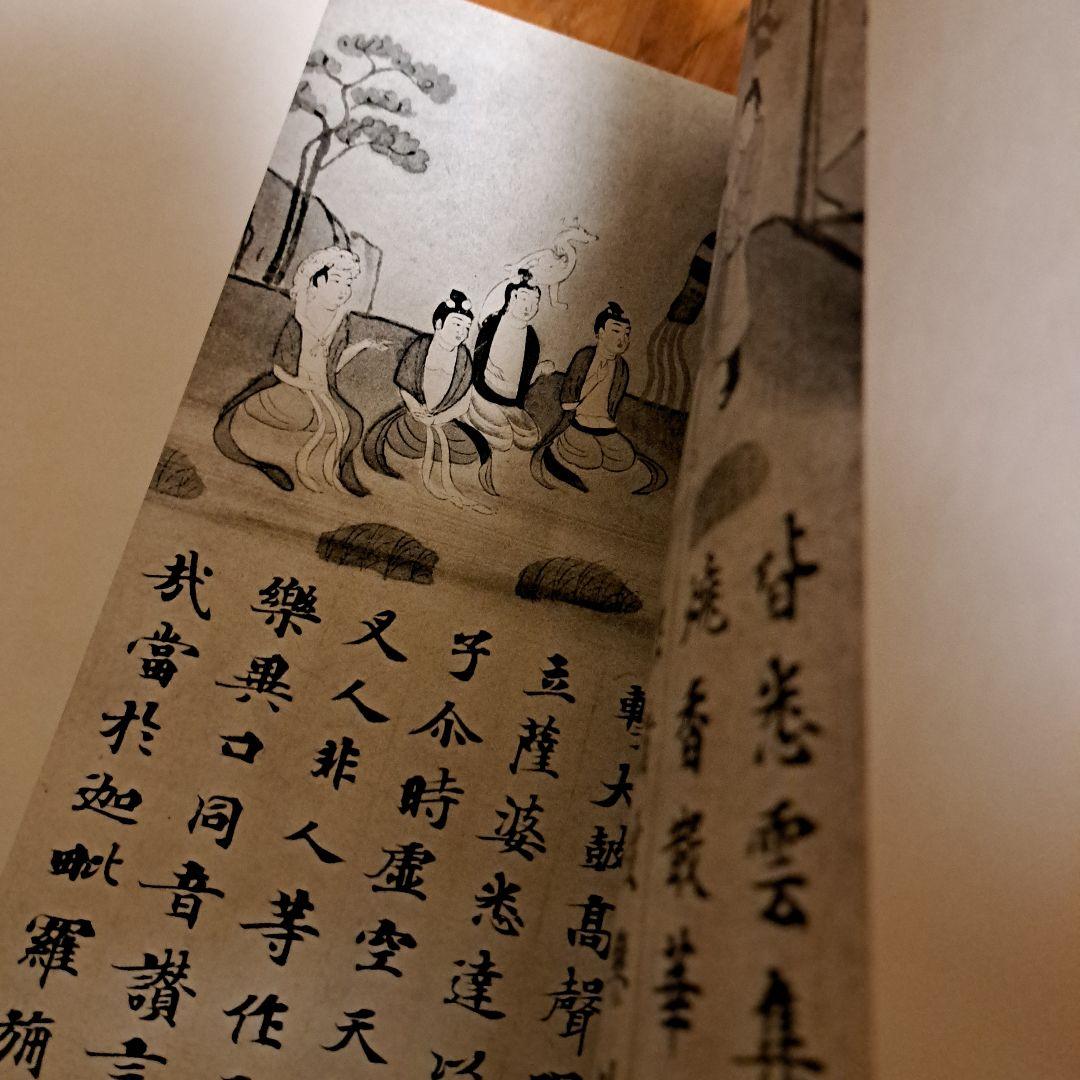 皆悉雲集
燒香散華
大鼓高聲
立薩婆悉達以
子尒時虛空天
叉人非人等作
樂異口同音讚言
哉當於迦毗羅旆